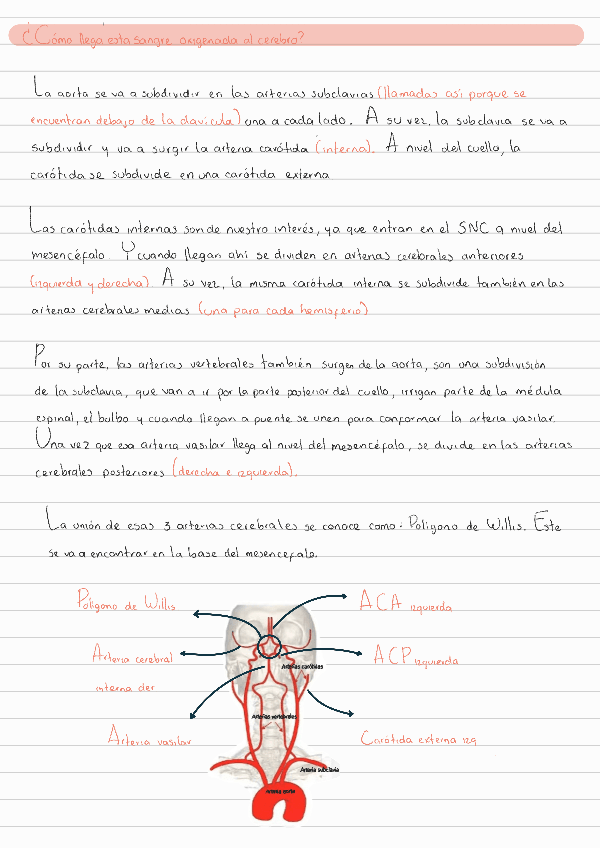 ¿Cómo llega esta sangre oxigenada al cerebro?
La aorta se va a subdividir en las arterias subclavias (llamadas así porque se
encuentran debajo de la clavícula) una a cada lado. A su vez, la subclavia se va a
subdividir y va a surgir la arteria carótida (interna). A nivel del cuello, la
carótida se subdivide en una carótida externa
Las carótidas internas son de nuestro interés, ya que entran en el SNC a nivel del
mesencéfalo. Y cuando llegan ahí se dividen en arterias cerebrales anteriores
(izquierda y derecha) A su vez, la misma carótida interna se subdivide también en las
arterias cerebrales medias (una para cada hemisferio)
Por su parte, las arterias vertebrales también surgen de la aorta, son una subdivisión
de la subclavia, que van a ir por la parte posterior del cuello, irrigan parte de la médula
espinal, el bulbo y cuando llegan a puente se unen para conformar la arteria vasilar.
Una vez que esa arteria vasilar llega al nivel del mesencéfalo, se divide en las arterias
cerebrales posteriores (derecha e izquierda).
La unión de esas 3 arterias cerebrales se conoce como: Polígono de Willis. Este
se va a encontrar en la base del mesencefalo.
Polígono de Willis
ACA izquierda
Arteria cerebral
interna der
ACP izquierda
Arterias carótidas
Arterias vertebrales
Arteria vasilar
Carótida externa izq
Arteria subclavia
Arteria aorta